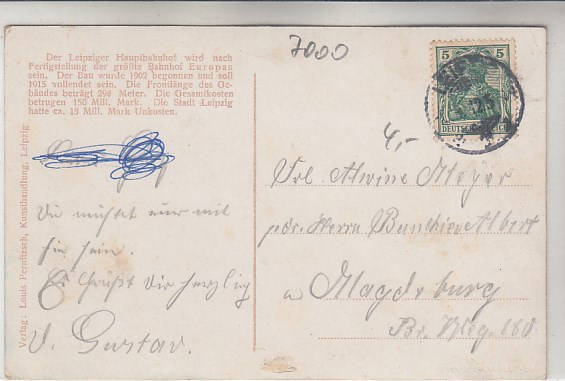 Der Leipziger Hauptbahnhof wird nach
Fertigstellung der größte Bahnhof Europas
sein. Der Bau wurde 1902 begonnen und soll
1915 vollendet sein. Die Frontlänge des Ge-
bäudes beträgt 298 Meter. Die Gesamtkosten
betrugen 150 Mill. Mark. Die Stadt Leipzig
hatte ca. 18 Mill. Mark Unkosten.
Verlag: Louis Pernitzsch, Kunsthandlung, Leipzig
7000
5 5
DEUTSCHES REICH
4,-
Frl. Alwine Meyer
Herrn Albert
Magdeburg
Du nur mit
hier sein.
Es grüßt Dich herzlich
Gustav.